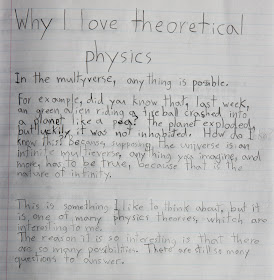 Why I love theoretical
physics
In the multyverse, anything is possible.
For example, did you know that, last week,
an green alien riding a fireball crashed into
a planet like a pea? the planet exploded,
but luckily, it was not inhabited. How do I
know this because, supposing the universe is an
infinite multiverse, anything you imagine, and
more, has to be true, because that is the
nature of infinity.
This is something I like to think about, but it
is one of many physics theories, witch are
interesting to me.
The reason it is so interesting is that there
are so many possibilities. There are still so many
questions to answer.